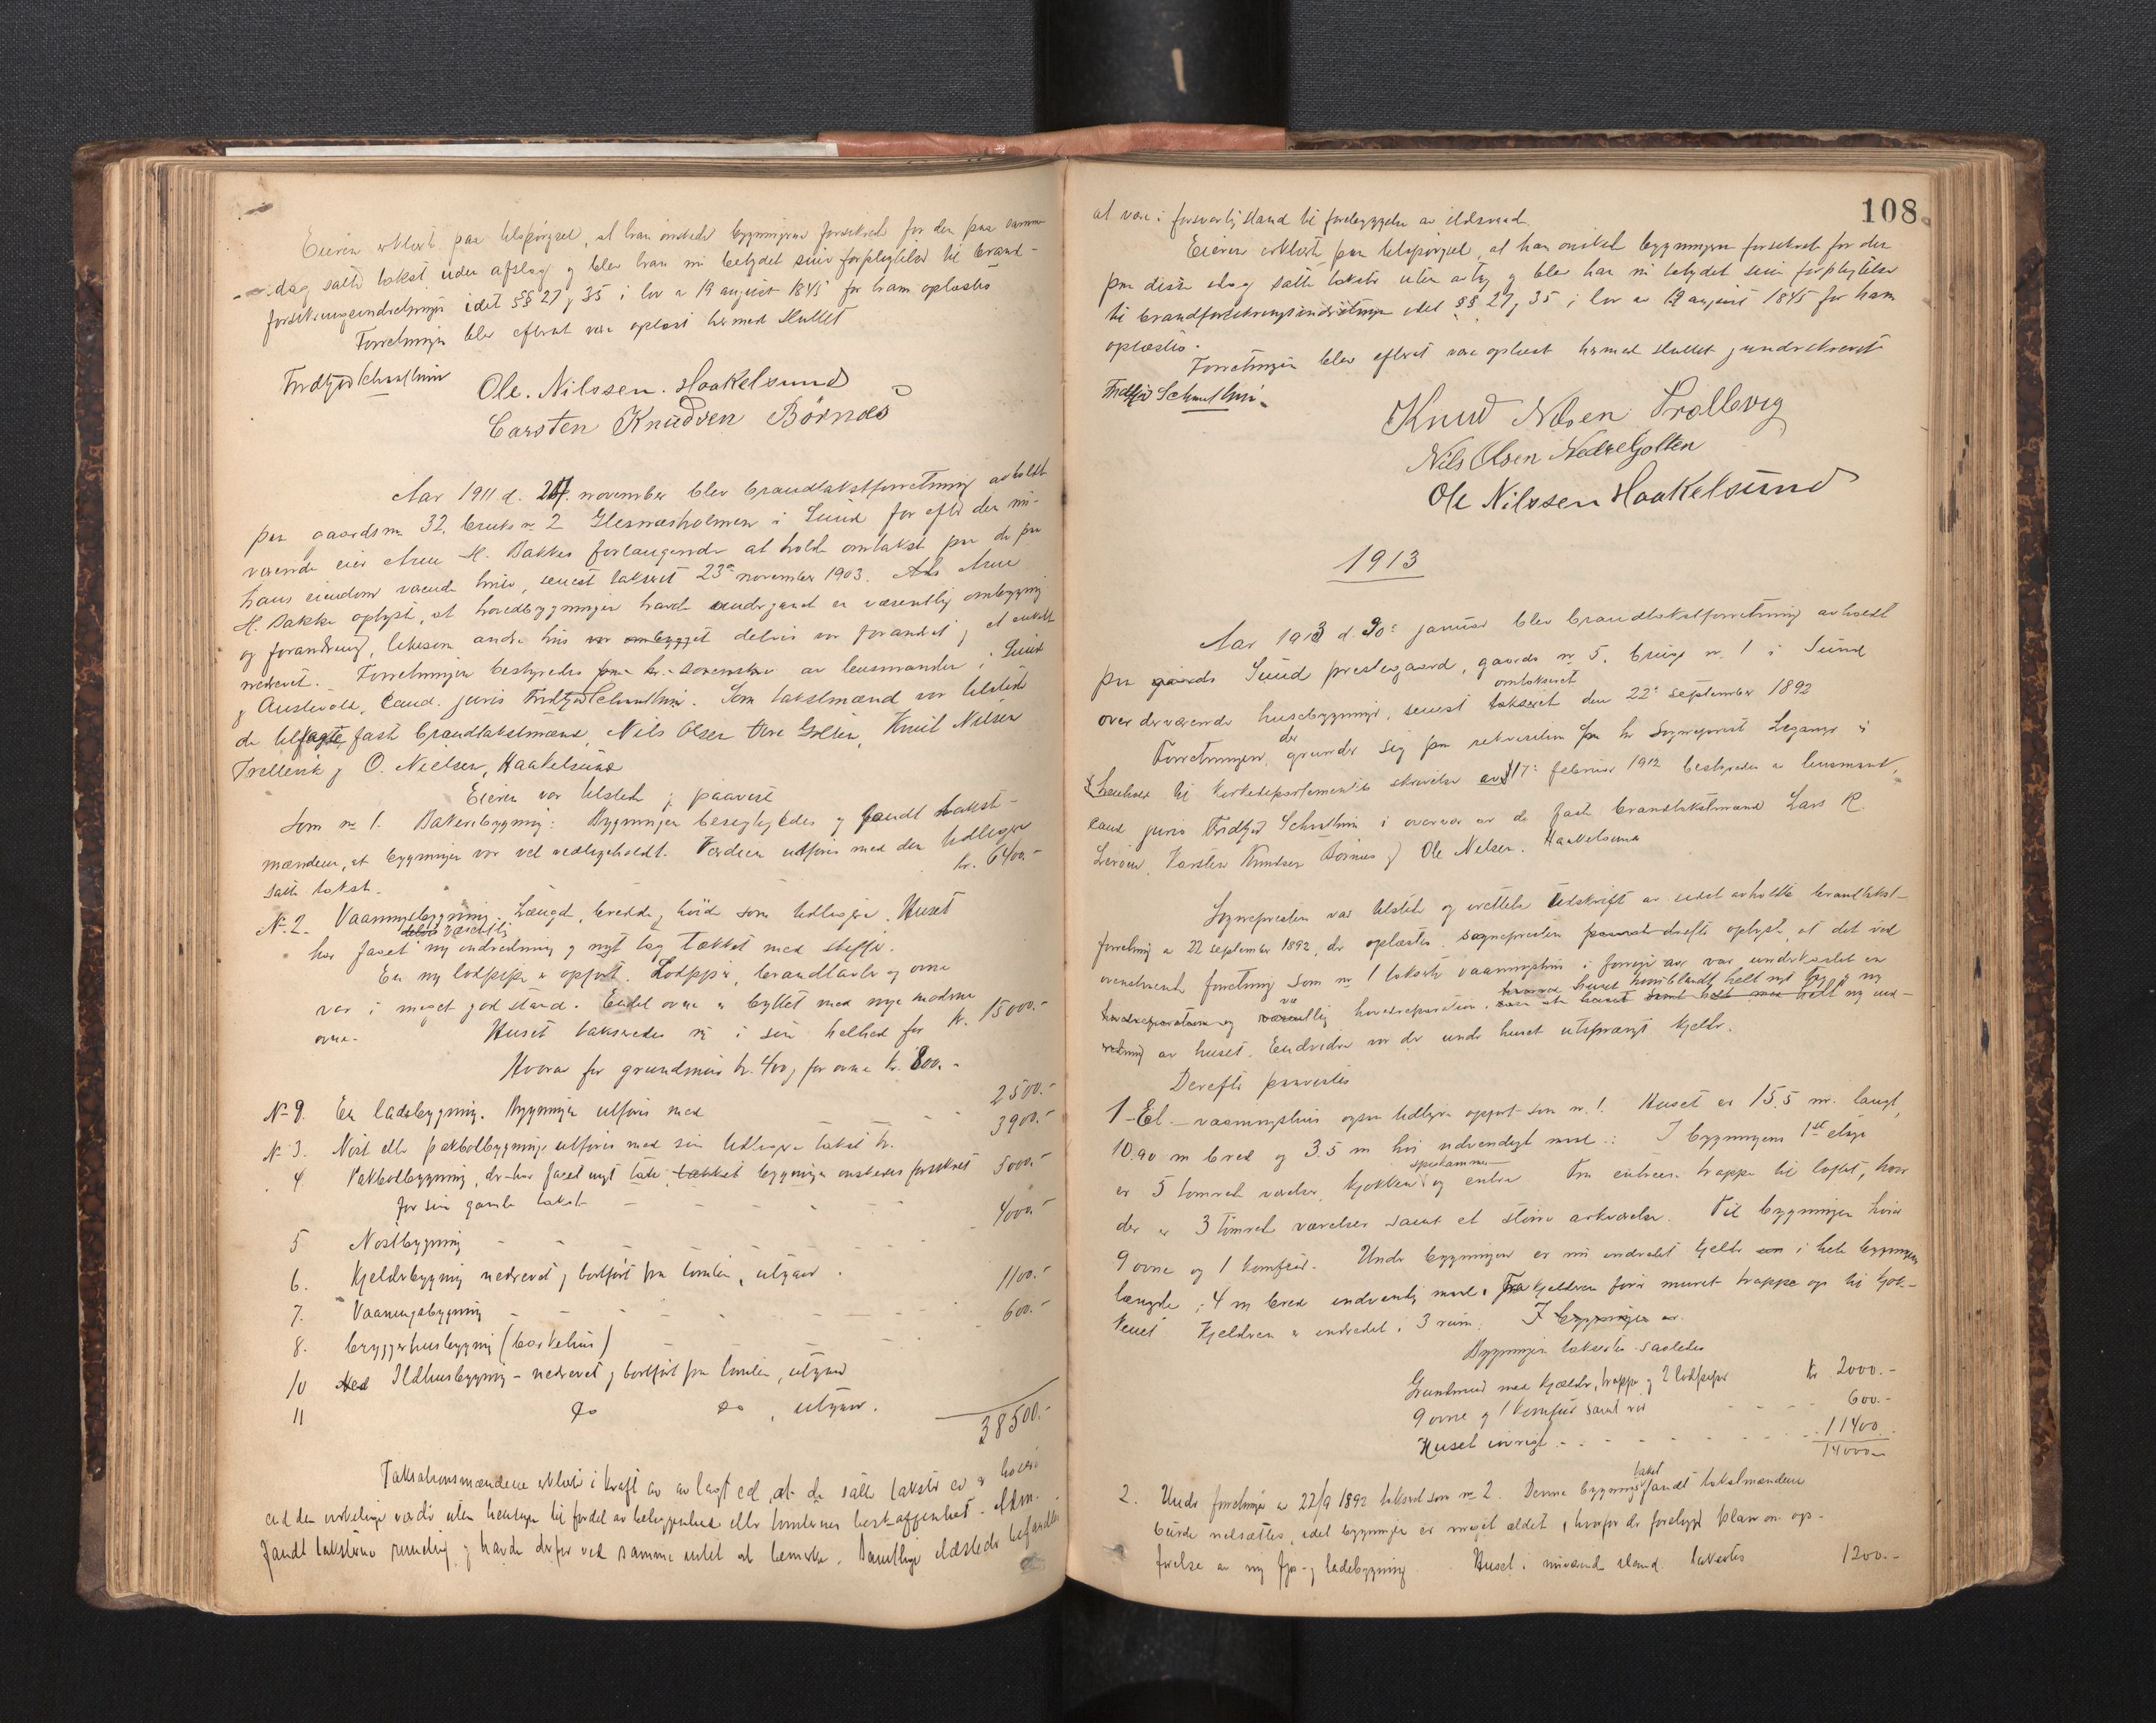 Eieren erklært paa tilspørgsel, at han ønskede bygningerne forsikret for den paa samme
dag satte takst uden afslag og blev han nu betydet sine forpligtelser til brand-
forsikringsindretninger idet §§ 27 og 35 i lov a 19 august 1845 for ham oplæstes
Forretningen blev efterat være oplæst hermed sluttet
Fridtjof Schulthin
Ole. Nilssen. Haakelsund
Carsten Knudsen Börnes
Aar 1911 d. 24. november blev brandtakstforretning avholdt
paa gaardsnr 32, bruks nr 2 Glesnæsholmen i Sund for efter den nu-
værende eier Arne H. Bakkes forlangende at holde omtakst paa de paa
hans eiendom værende huse, senest takseret 23de november 1903. Arne
H. Bakke oplyst, at hovedbygningen havde undergaaet en væsentlig ombygning
og forandring, likesom andre hus var ombygget delvis var forandret og et enkelt
nedrevet. Forretningen bestyredes av lensmanden i Sund
og Austevold, Cand. juris Fridtjof Schulthin. Som takstmænd var tilstede
de tilsagte, faste brandtakstmænd, Nils Olsen Golten, Knut Nilsen
Trellevik og O. Nielsen, Haakelsund
Eieren var tilstede og paaviste
Som nr 1. Bakeribygning: Bygningen besigtigedes og fandt takst-
mændene, at bygningen var vel vedligeholdt. Værdien utføres med den tidligere
satte takst. kr. 6400.-
No. 2. Vaaningsbygning. Længde, bredde, høide som tidligere. Huset
har faaet ny indredning og nyt tag tækket med skiffer.
En ny lodpipe er opført. Lodpiper, brandtavler og ovne
var i meget god stand. Endel ovne er byttet med nye moderne
ovne. Huset takseredes nu i sin helhed for kr. 15000.-
Hvorav for grundmur kr. 400, for ovne kr. 800.-
No 9. En ladebygning. Bygningen utføres med 2500.-
No 3. Nøst eller pakbodbygning utføres med sin tidligere takst kr. 3900.-
4 Pakbodbygning, der har faaet nyt tak, tækket bygningen ønskedes forsikret
for sin gamle takst 5000.-
5 Nøstbygning 4000.-
6. Kjelderbygning nedrevet og bortført fra tomten, utgaar.
7. Vaaningsbygning 1100.-
8. bryggerhusbygning (barkehus) 600.-
10 Ned Ildhusbygning - nedrevet og bortført fra tomten, utgaar
11 do do, utgaar.
38500.-
Taksationsmændene erklært i kraft av avlagt ed, at de satte takster ei er høiere
end den virkelige værdi uten hensyn til fordel av beliggenhed eller tomternes beskaffenhet. Adm.
fandt taksterne rimelig og havde derfor ved samme intet at bemerke. Samtlige ildsteder befandtes
108
at være i forsvarlig stand til forebyggelse av ildsvaad.
Eieren erklært paa tilspørgsel, at han ønsket bygningen forsikret for den
paa disse idag satte takster uten avslag og blev han nu betydet sine forpligtelser
til brandforsikringsindretningen idet §§ 27 og 35 i lov av 19 august 1845 for ham
oplæstes.
Forretningen blev efterat være oplæst hermed sluttet og underskrevet
Fridtjof Schulthin.
Knud Nilsen Trollevig
Nils Olsen Nedregolten
Ole Nilssen Haakelsund
1913
Aar 1913 d. 30te januar blev brandtakstforretning avholdt
paa Sund prestegaard, gaards nr 5, bruks nr. 1 i Sund
over derværende husebygninger, senest omtakseret den 22de september 1892
Forretningen der grunder sig paa rekvisition fra hr Sogneprest Legange i
henhold til Kirkedepartementets skrivelse av 17de februar 1912 bestyredes av lensmand,
cand juris Fridtjof Schulthin i overvær av de faste brandtakstmænd Lars R.
Lerøen, Karsten Knudsen Börnes og Ole Nilsen. Haakelsund
Sognepresten var tilstede og fremla utskrift av sidst avholdte brandtakst-
forretning av 22 september 1892, der oplæstes. Sognepresten derefter oplyst, at det ved
ovennævnte forretning som nr 1 takserte vaaningshus i forrige aar var underkastet en
hovedreparation, huset heriblandt helt nyt tag og ny ind-
redning av huset. Endvidere var der under huset utsprængt kjelder.
Derefter paavistes
1 - Et - vaaningshus ogsaa tidligere opført som nr 1. Huset er 15.5 m. langt,
10.90 m bred og 3.5 m høi utvendigt maal. I bygningens 1ste etage
er 5 tømrede værelser, kjøkken spiskammer og entre. Fra entreen trappe til loftet, hvor
der er 3 tømrede værelser samt et større arkværelse. Til bygningen hører
9 ovne og 1 komfur. Under bygningen er nu indredet kjelder i hele bygningens
længde, 4 m bred indvendig maal. Fra kjelderen fører muret trappe op til kjøk-
kenet Kjelderen er indredet i 3 rum. I bygningen er
Bygningen taksertes saaledes
Grundmur med kjelder, trappe og 2 lodpiper kr 2000.-
9 ovne og 1 komfur samt rør 600.-
Huset iøvrigt 11400.
14000.-
2. Under forretningen av 22/9 1892 takseret som nr 2. Denne bygnings takst fandt takstmændene
burde nedsættes, idet bygningen er meget ældet, hvorfor der foreligger plan om op-
førelse av ny fjøs- og ladebygning. Huset i nuværende stand takseres 1200.-